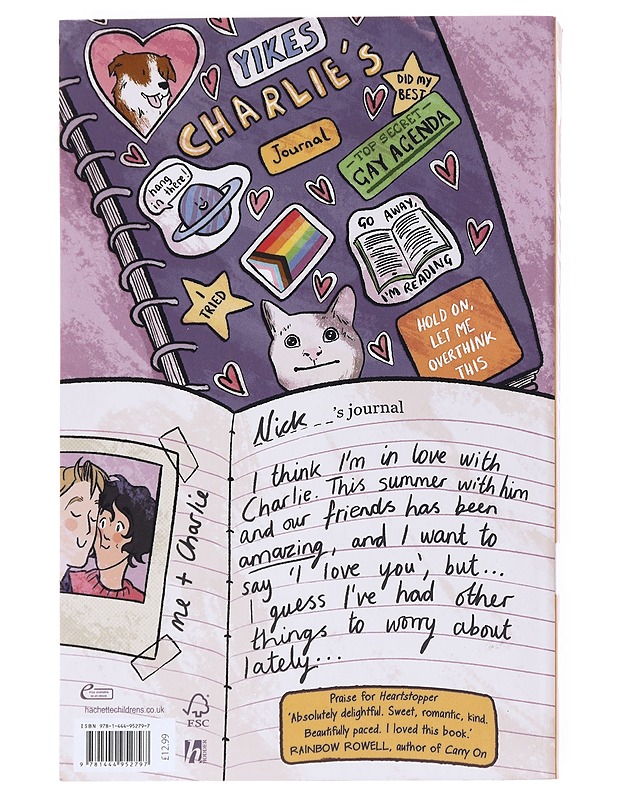 YIKES
CHARLIE'S
Journal
DID my
BEST
-TOP SECRET-
GAY AGENDA
hang
in there!
GO AWAY,
I'M READING
I
TRIED
HOLD ON,
LET ME
OVERTHINK
THIS
Nick__'s journal
I think I'm in love with
Charlie. This summer with him
and our friends has been
amazing, and I want to
say 'I love you', but...
I guess I've had other
things to worry about
lately...
me + Charlie
hachettechildrens.co.uk
ISBN 978-1-444-95279-7
9 781444 952797
£12.99
FSC
HODDER
Praise for Heartstopper
'Absolutely delightful. Sweet, romantic, kind.
Beautifully paced. I loved this book.'
RAINBOW ROWELL, author of Carry On